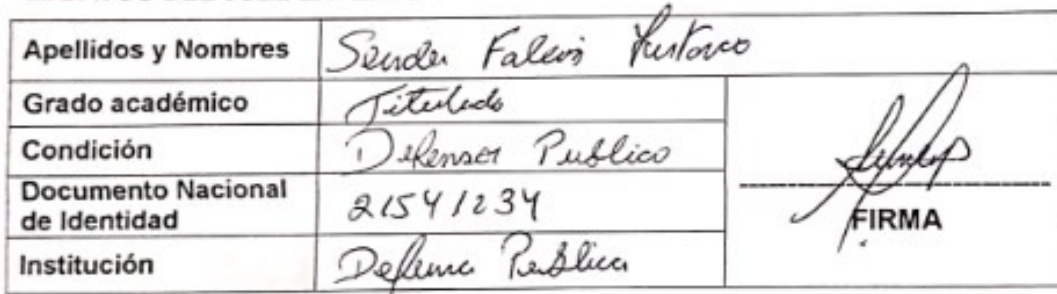 Apellidos y Nombres
Grado académico Titulado
Condición Defensor Publico
Documento Nacional
de Identidad 21541234
FIRMA
Institución Defensa Publica